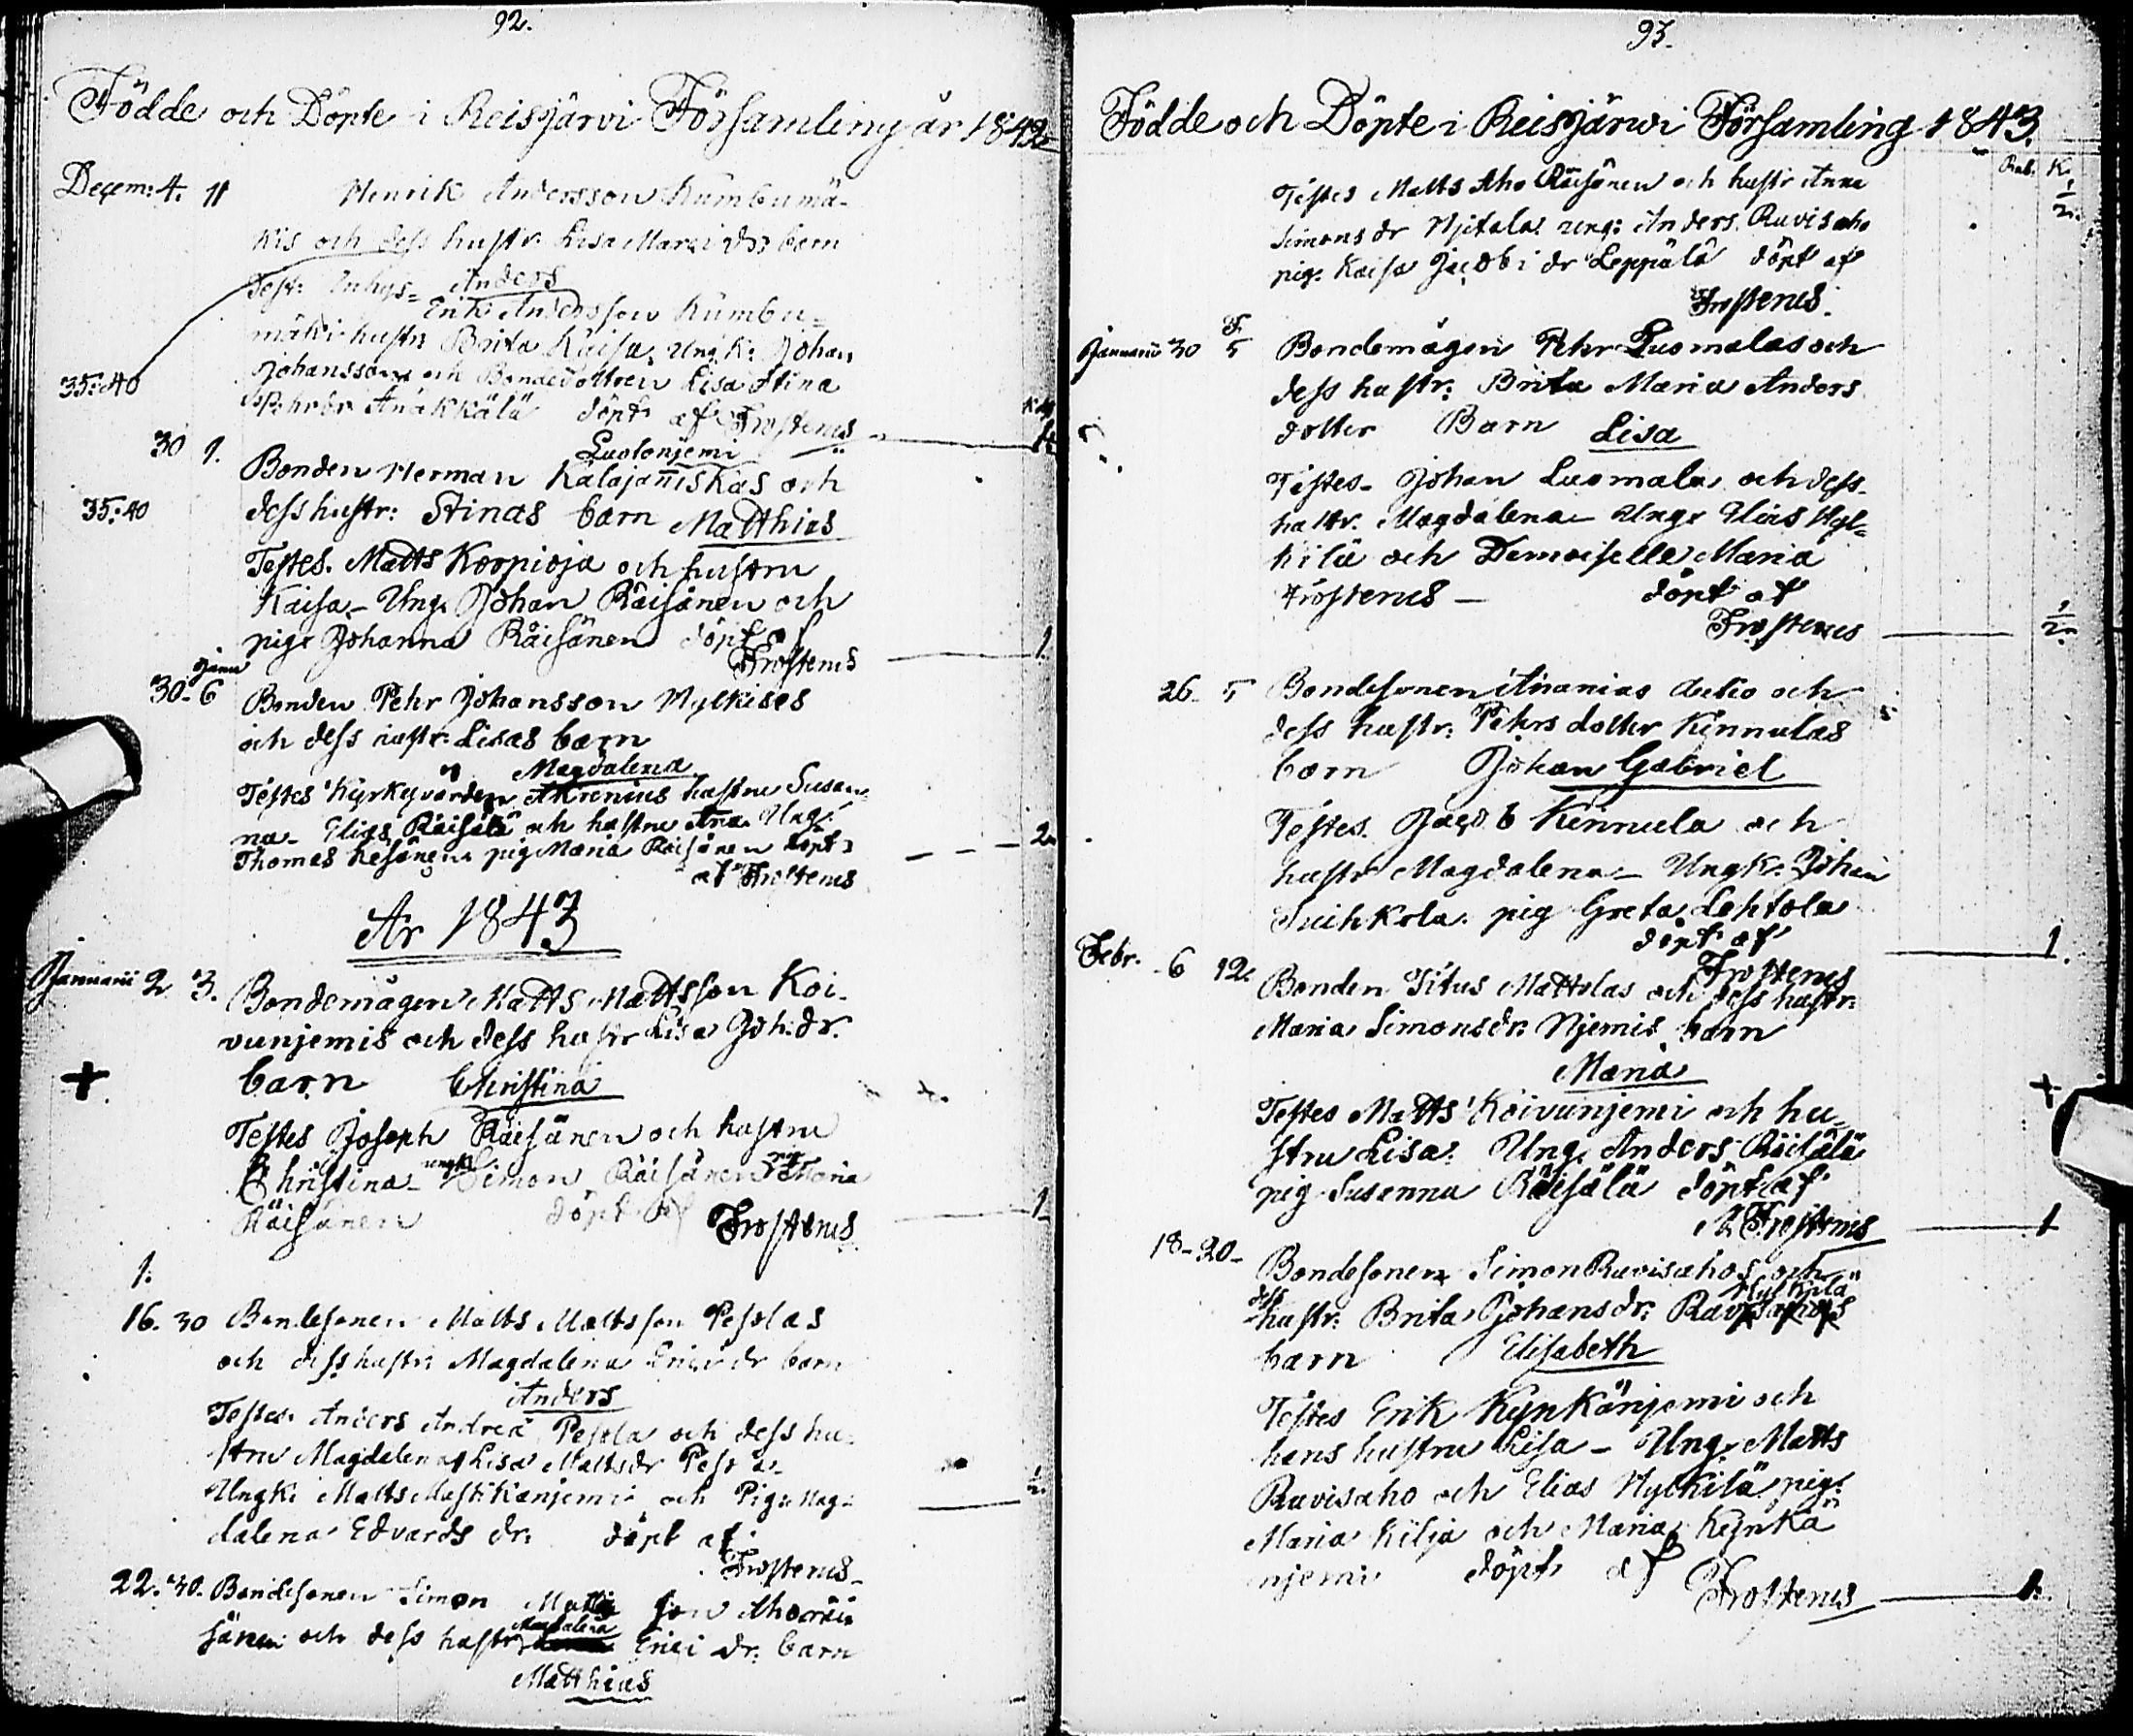 92.
Födde och Döpte i Reisjärvi Församling år 1842
Decem: 4. 11 Henrik Andersson Kumbumä-
kis och dess hustr. Lisa Marci dr barn
Test: Inhys= Anders
Erik Andersson Kumbu=
mäki hustr: Brita Kaisa, Ungk: Johan
Johansson och Bondedottren Lisa Stina
35:40 Pehrsdr Anakkälä döpt af Frosterus
30 1. Luolonjemi
Bonden Herman Kalajaniskas och
35:40 dess hustr: Stinas barn Matthias
Testes. Matts Korpioja och hustru
Kaisa - Ung: Johan Räisänen och
pig: Johanna Räisänen döpt af
Frosterus 1.
Janu
30-6 Bonden Pehr Johansson Hylkiäs
och dess hustr: Lisas barn
Magdalena
Testes Kyrkovärden Akrenius hustru Susan
na- Elias Räisälä och hustru Ana Ung:
Thomas Kesänen pig Maria Räisänen döpt 2
af Frosterus
År 1843
Januarii 2 3. Bondemågen Matts Mattsson Koi-
vunjemis och dess hustr Lisa Joh: dr.
+ barn Christina
Testes Joseph Räisänen och hustru
Christina - ungk: Simon Räisänen pig Maria
Räisänen döpt af Frosterus 1
1.
16. 30 Bondesonen Matts Mattsson Pesolas
och dess hustr: Magdalena Erici dr barn
Anders
Testes. Anders Andreä Pesola och dess hu-
stru Magdalena, Lisa Mattsdr Pesola-
Ungk: Matts Mustikanjemi och Pig: Mag- 1/2
dalena Edvards dr: döpt af
Frosterus
22. 30. Bondesonen Simon Matts son Ahoräi
sänen och dess hustr Magdalena Erici dr: barn
Matthias
93.
Födde och Döpte i Reisjärwi Församling 1843.
Rub. K.
Testes Matts Aho Räisänen och hustr Anna 1/2
Simons dr Njitala ung: Anders Ruvisaho
pig. Kaisa Jacobi dr Leppälä döpt af
Frosterus.
Januarii 30 F. 5 Bondemågen Pehr Luomalas och
dess hustr: Brita Maria Anders
dotter Barn Lisa
Testes- Johan Luomala och dess
hustr. Magdalena - Ung: Elias Hyl=
kilä och Demoiselle Maria
Frosterus - döpt af
Frosterus 1/2
26. 5 Bondesonen Ananias Autio och
dess hustr: Pehrs dotter Kinnulas
barn Johan Gabriel
Testes. Jacob Kinnula och
hustr Magdalena - Ungk: Johan
Suihkola. pig Greta Lehtola
döpt af 1.
Frosterus
Febr. 6 12. Bonden Titus Mattolas och dess hustr:
Maria Simonsdr: Njemis barn
Maria
Testes Matts Koivunjemi och hu-
stru Lisa. Ung. Anders Räisälä
pig Susanna Räisälä döpt af
N. Frosterus 1
18-20- Bondesonen Simon Ruvisahos och
Hylkilä
dess hustr: Brita Johansdr: Ruvisahos
barn Elisabeth
Testes Erik Kynkänjemi och
hans hustru Lisa - Ung. Matts
Ruvisaho och Elias Hylkilä, pig:
Maria Kilja och Maria Kynkä
njemi döpt af Frosterus 1.